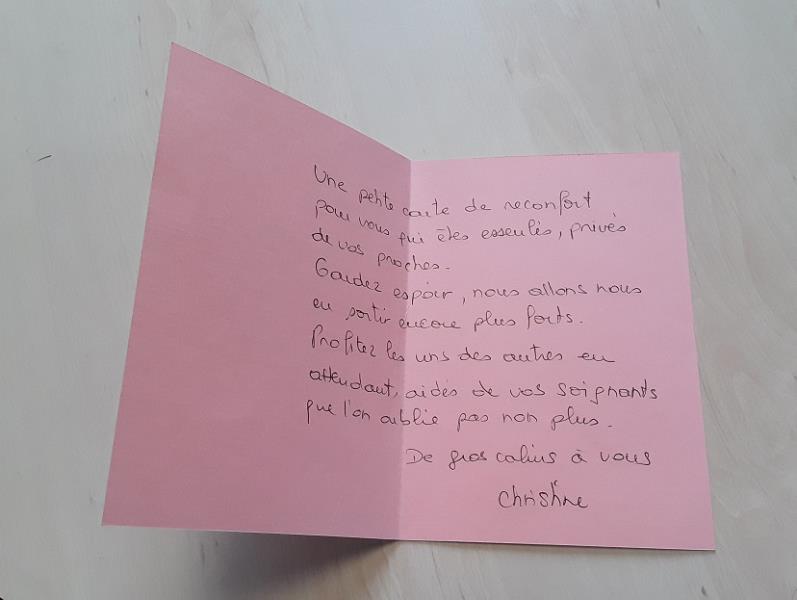 Une petite carte de reconfort
pour vous qui êtes esseulés, privés
de vos proches.
Gardez espoir, nous allons nous
en sortir encore plus forts.
Profitez les uns des autres en
attendant, aidés de vos soignants
que l'on oublie pas non plus.
De gros calins à vous
Christine